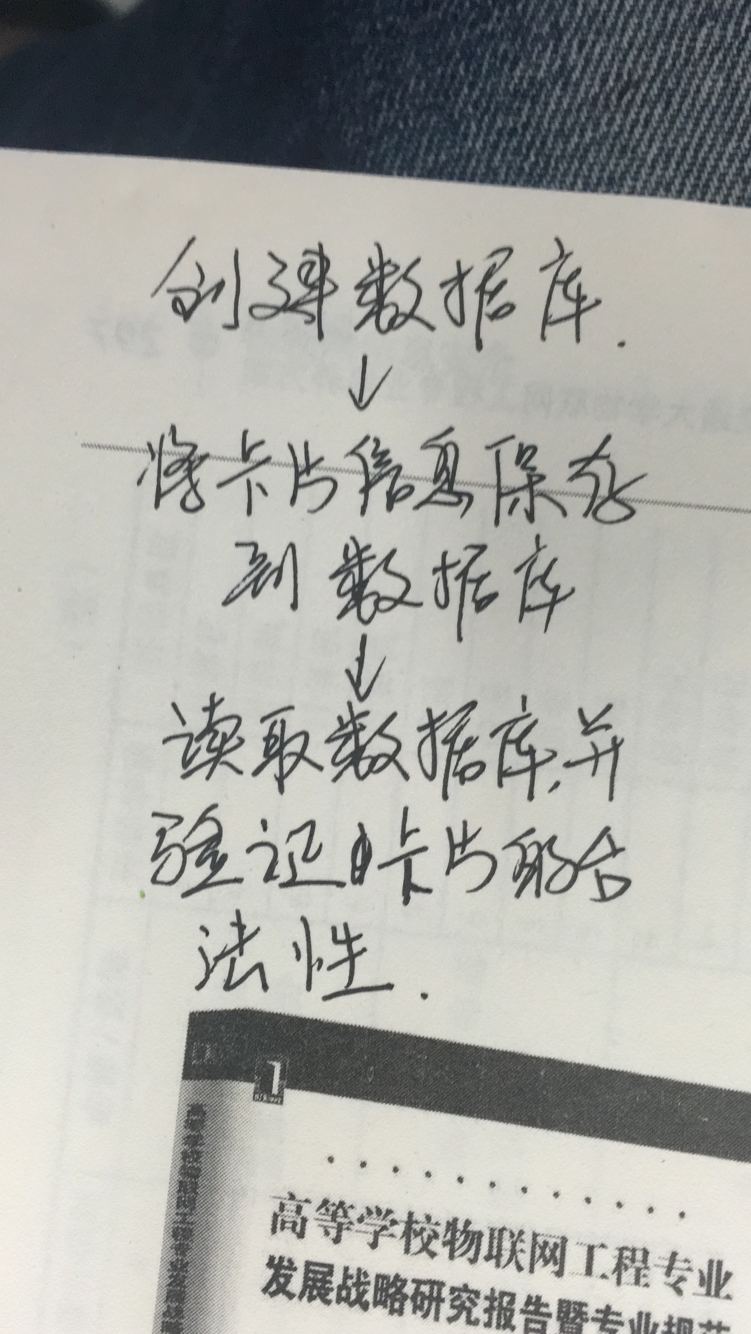 创建数据库.
↓
将卡片信息保存
到数据库
↓
读取数据库,并
验证卡片的合
法性.
高等学校物联网工程专业
发展战略研究报告暨专业规范